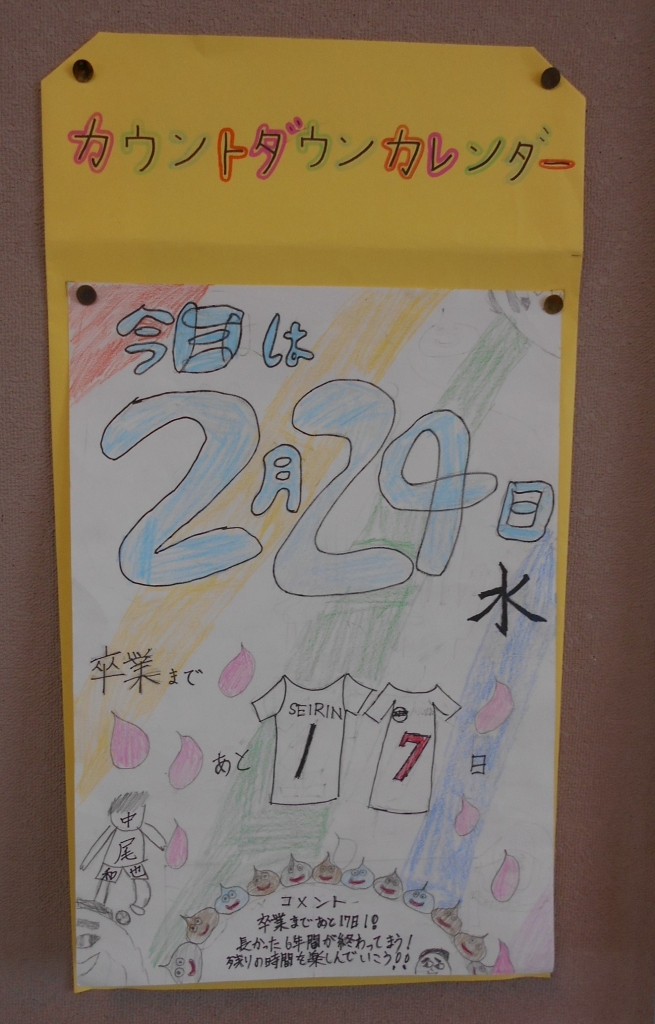 カウントダウンカレンダー
今日は
2月24日
水
卒業まで
あと 17日
SEIRIN
中尾
和也
コメント
卒業まであと17日!!
長かった6年間が終わってまう!
残りの時間を楽しんでいこう!!